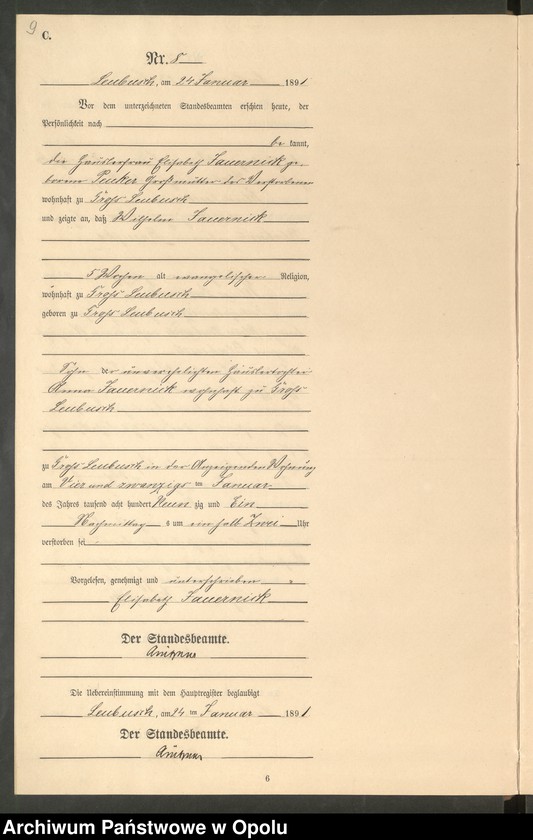 9
C.
Nr. 8
Leubusch, am 24 Januar 1891
Vor dem unterzeichneten Standesbeamten erschien heute, der
Persönlichkeit nach
be kannt,
die Häuslerfrau Elisabeth Sauernick ge-
borene Peuker Großmutter des Verstorbenen
wohnhaft zu Groß Leubusch
und zeigte an, daß Wilhelm Sauernick
5 Wochen alt evangelischer Religion,
wohnhaft zu Groß Leubusch
geboren zu Groß Leubusch
Sohn der unverehelichten Häuslertochter
Anna Sauernick wohnhaft zu Groß
Leubusch
zu Groß Leubusch in der Anzeigenden Wohnung
am Vier und zwanzigs ten Januar
des Jahres tausend acht hundert Neun zig und Ein
Nachmittag s um ein halb Zwei Uhr
verstorben sei
Vorgelesen, genehmigt und unterschrieben
Elisabeth Sauernick
Der Standesbeamte.
Die Uebereinstimmung mit dem Hauptregister beglaubigt
Leubusch, am 24 ten Januar 1891
Der Standesbeamte.
6
Archiwum Państwowe w Opolu